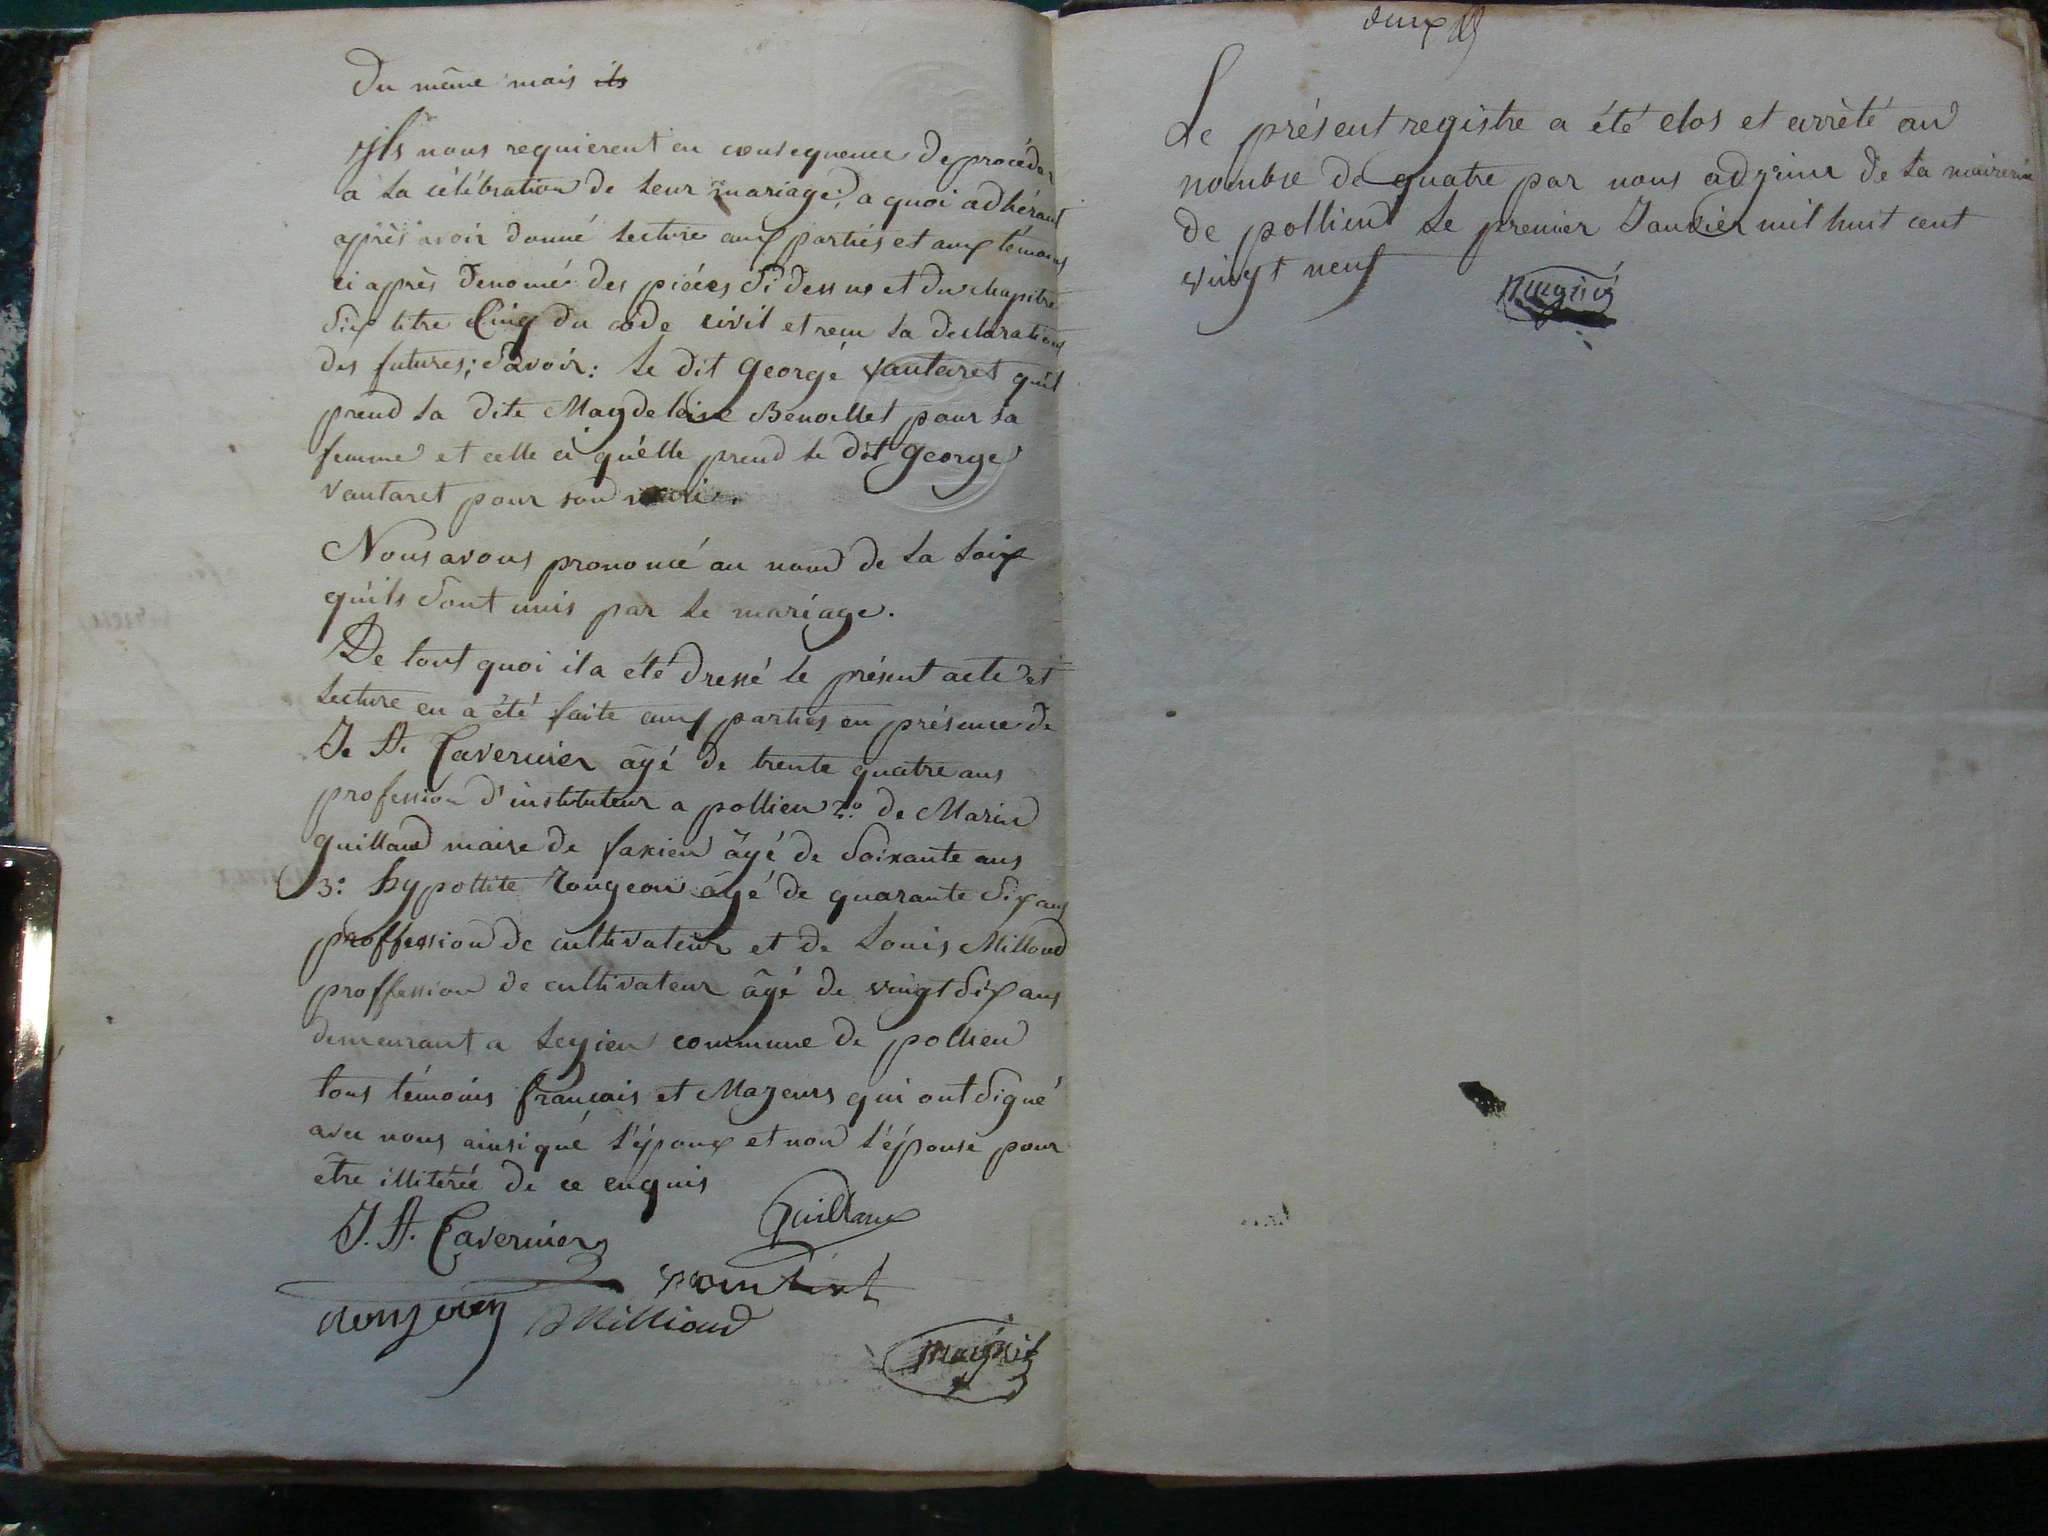 Du même mais ils
Ils nous requierent en consequence de procéder
a la célébration de leur mariage, a quoi adhérant
après avoir donné lecture aux partiés et aux témoins
ci après denomé des piéces Si dessus et du chapitre
Six titre Cinq du code civil et recu la declarations
des futures; Savoir: le dit georgé vautaret qu'il
prend la dite Magdeleine Benoillet pour sa
femme et celle ci qu'élle prend le dit george
vautaret pour son mari.
Nous avons prononcé au nom de la loix
qu'ils Sont unis par le mariage.
De tout quoi il a été dressé le présent acte et
lecture en a été faite aux parties en présence de
J. A. Tavernier âgé de trente quatre ans
profession d'instituteur a pollieu 2.o de Marin
guilland maire de faxieu âgé de Soixante ans
3.o hypollite rougeon âgé de quarante Six ans
proffession de cultivateur et de Louis Milloud
proffession de cultivateur âgé de vingt Six ans
demeurant a Leyieu commune de pollieu
tous témoins français et Majeurs qui ont Signé
avec nous ainsi qué l'époux et non l'épouse pour
etre illiterée de ce enquis
J. A. Tavernier
Millioud
deux
Le présent registre a été clos et arrêté au
nombre de quatre par nous adjoint de la mairerie
de pollieu le premier Janvier mil huit cent
vingt neuf